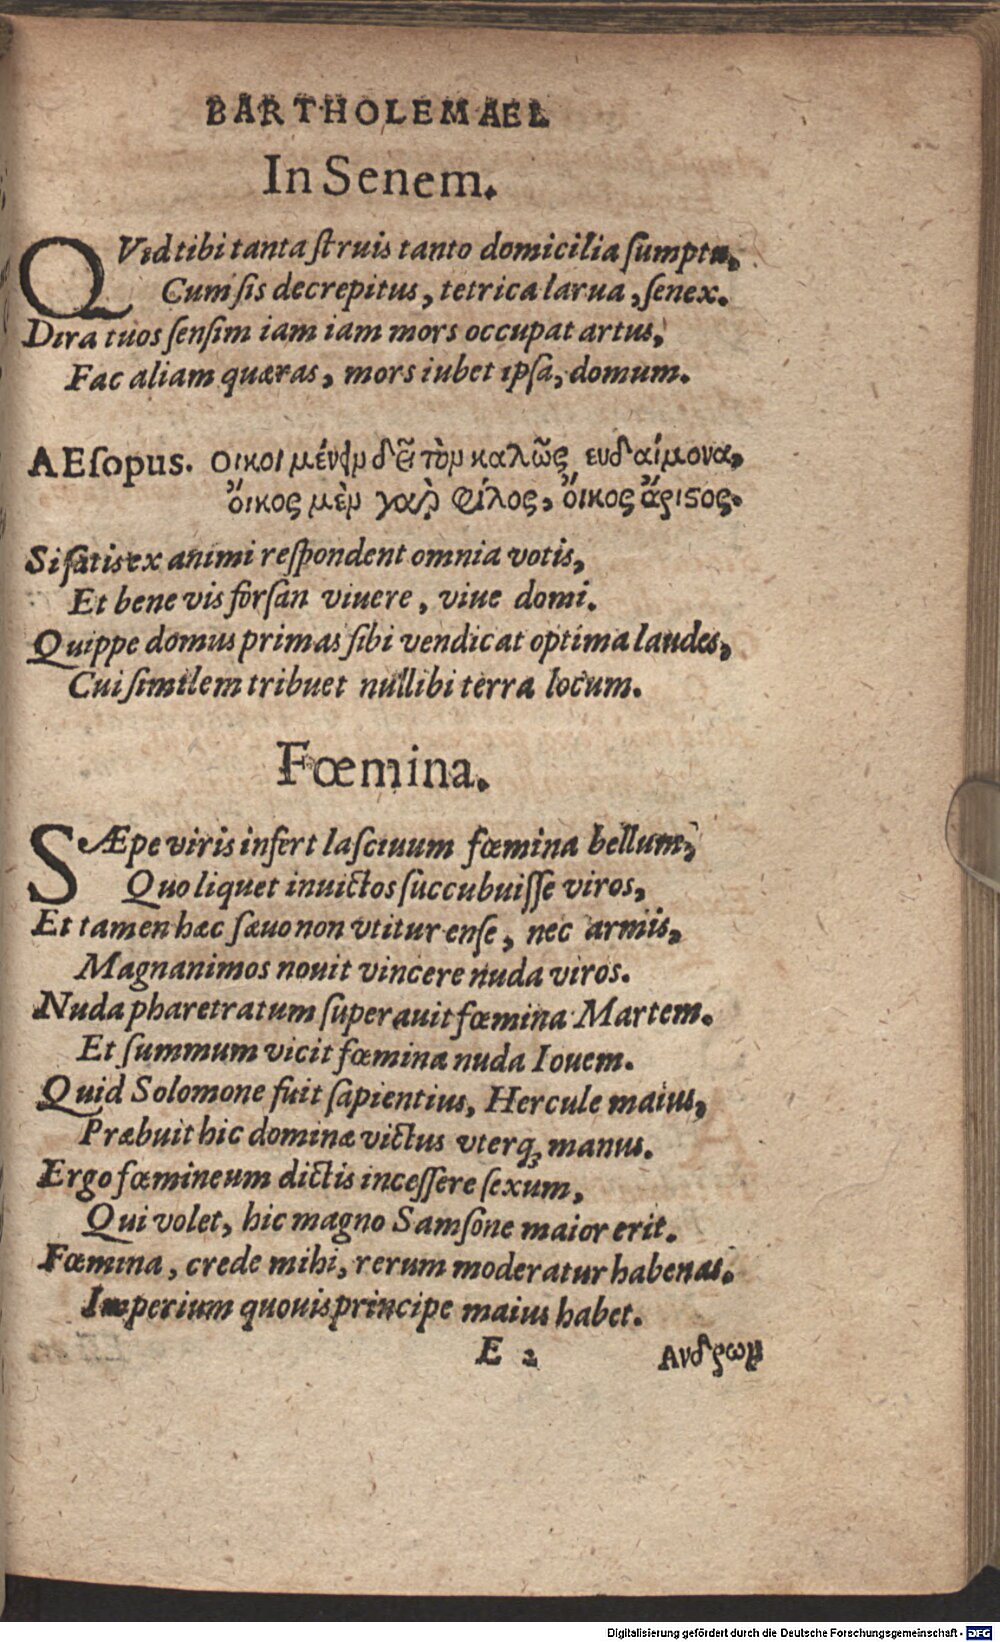 BARTHOLEMAEI
In Senem.
QVid tibi tanta ſtruis tanto domicilia ſumptu,
Cum ſis decrepitus, tetrica larua, ſenex.
Dira tuos ſenſim iam iam mors occupat artus,
Fac aliam quæras, mors iubet ipſa, domum.
AEſopus. Οικοι μένειν δεῖ τὸν καλῶς ευδαίμονα,
ὄικος μὲν γαρ φίλος, ὄικος ἄριϛος.
Si ſatis ex animi reſpondent omnia votis,
Et bene vis forſan viuere, viue domi.
Quippe domus primas ſibi vendicat optima laudes,
Cui ſimilem tribuet nullibi terra locum.
Fœmina.
SÆpe viris infert laſciuum fœmina bellum,
Quo liquet inuictos ſuccubuiſſe viros,
Et tamen hæc ſæuo non vtitur enſe, nec armis,
Magnanimos nouit vincere nuda viros.
Nuda pharetratum ſuperauit fœmina Martem.
Et ſummum vicit fœmina nuda Iouem.
Quid Solomone fuit ſapientius, Hercule maius,
Præbuit hic dominæ victus vterq; manus.
Ergo fœmineum dictis inceſſere ſexum,
Qui volet, hic magno Samſone maior erit.
Fœmina, crede mihi, rerum moderatur habenas.
Imperium quouis principe maius habet.
E 2 Ανδρων
Digitalisierung gefördert durch die Deutsche Forschungsgemeinschaft - DFG